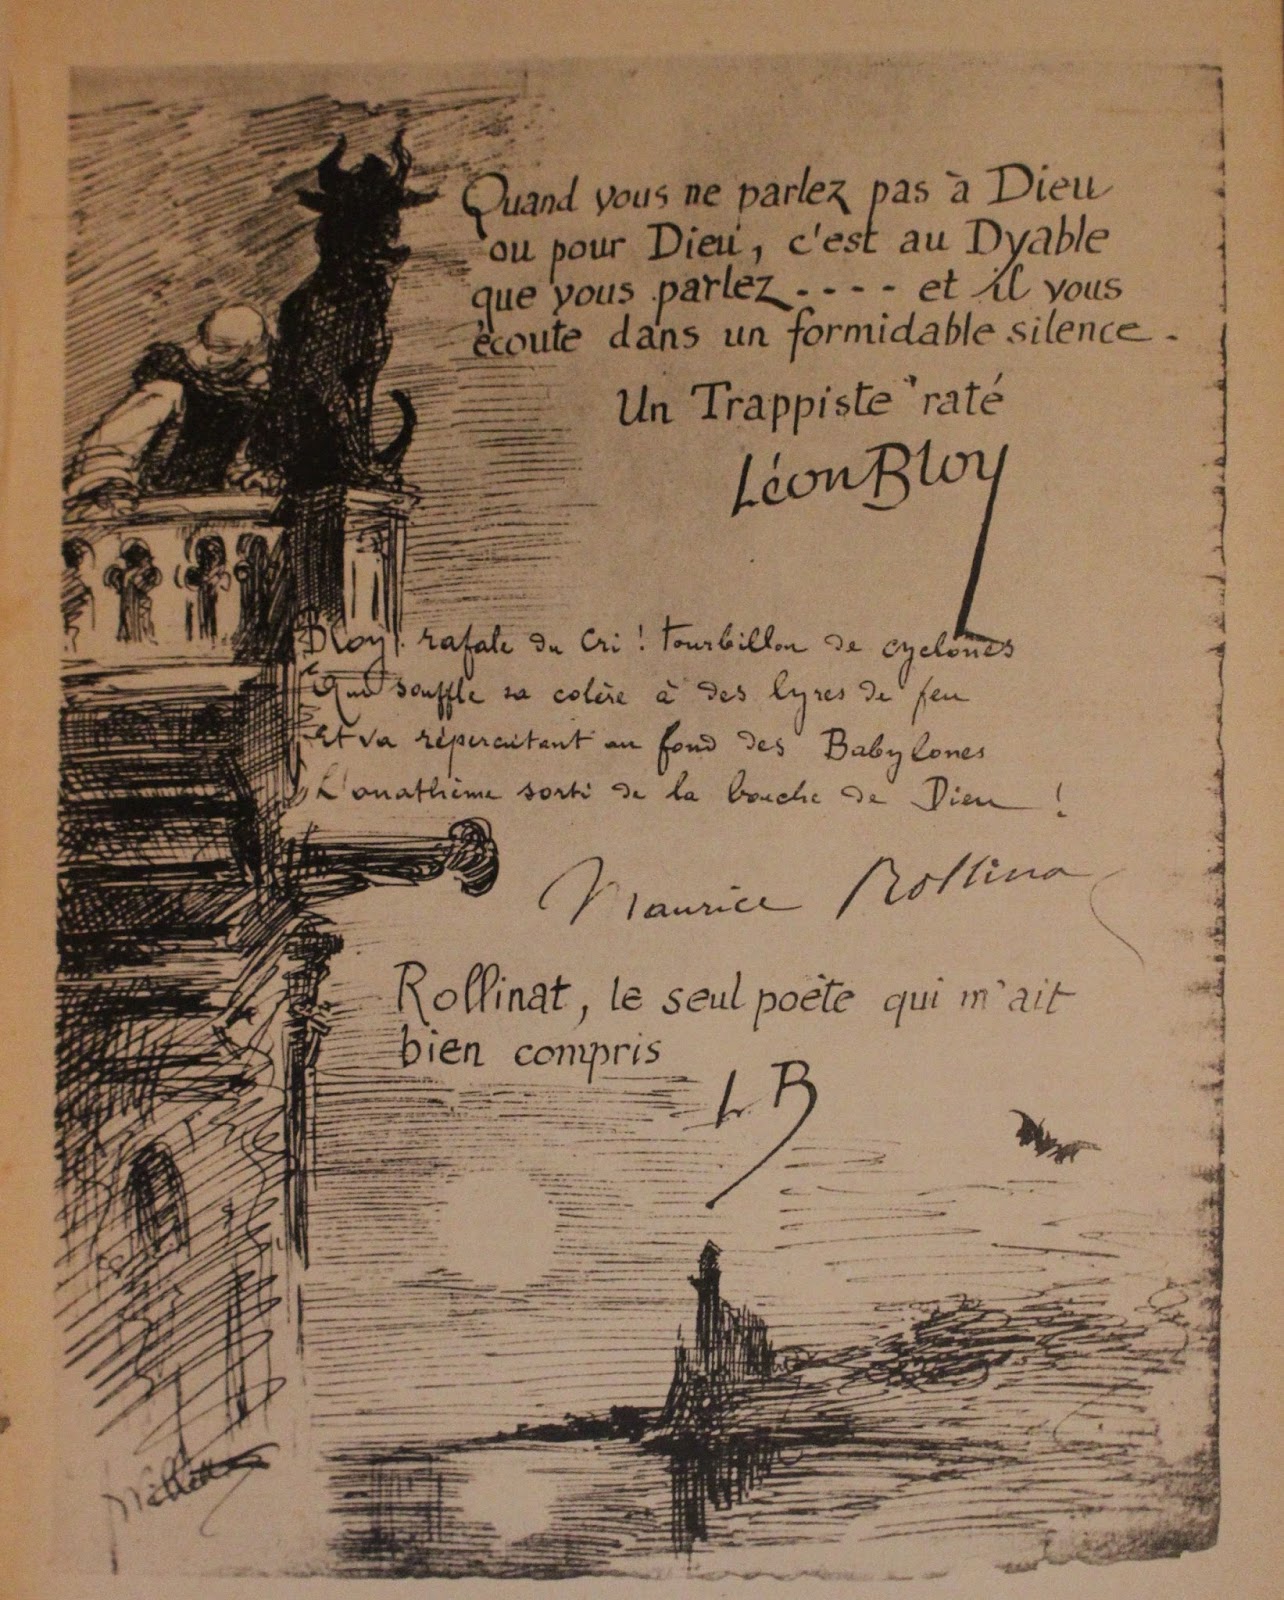 Quand vous ne parlez pas à Dieu
ou pour Dieu, c'est au Dyable
que vous parlez---- et il vous
écoute dans un formidable silence.
Un Trappiste raté
Léon Bloy
Bloy! rafale du Cri! tourbillon de cyclones
Qui souffle sa colère à des lyres de feu
Et va répercutant au fond des Babylones
L'anathème sorti de la bouche de Dieu !
Maurice Rollinat
Rollinat, le seul poète qui m'ait
bien compris
L B